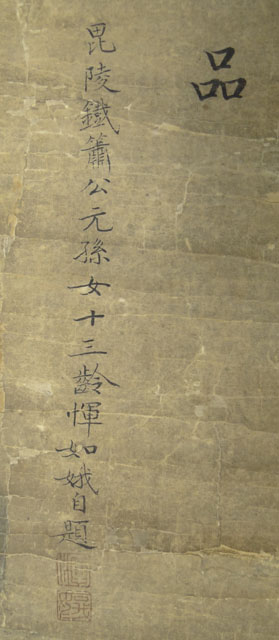 品
毘陵鐵簫公元孫女十三齡惲如娥自題